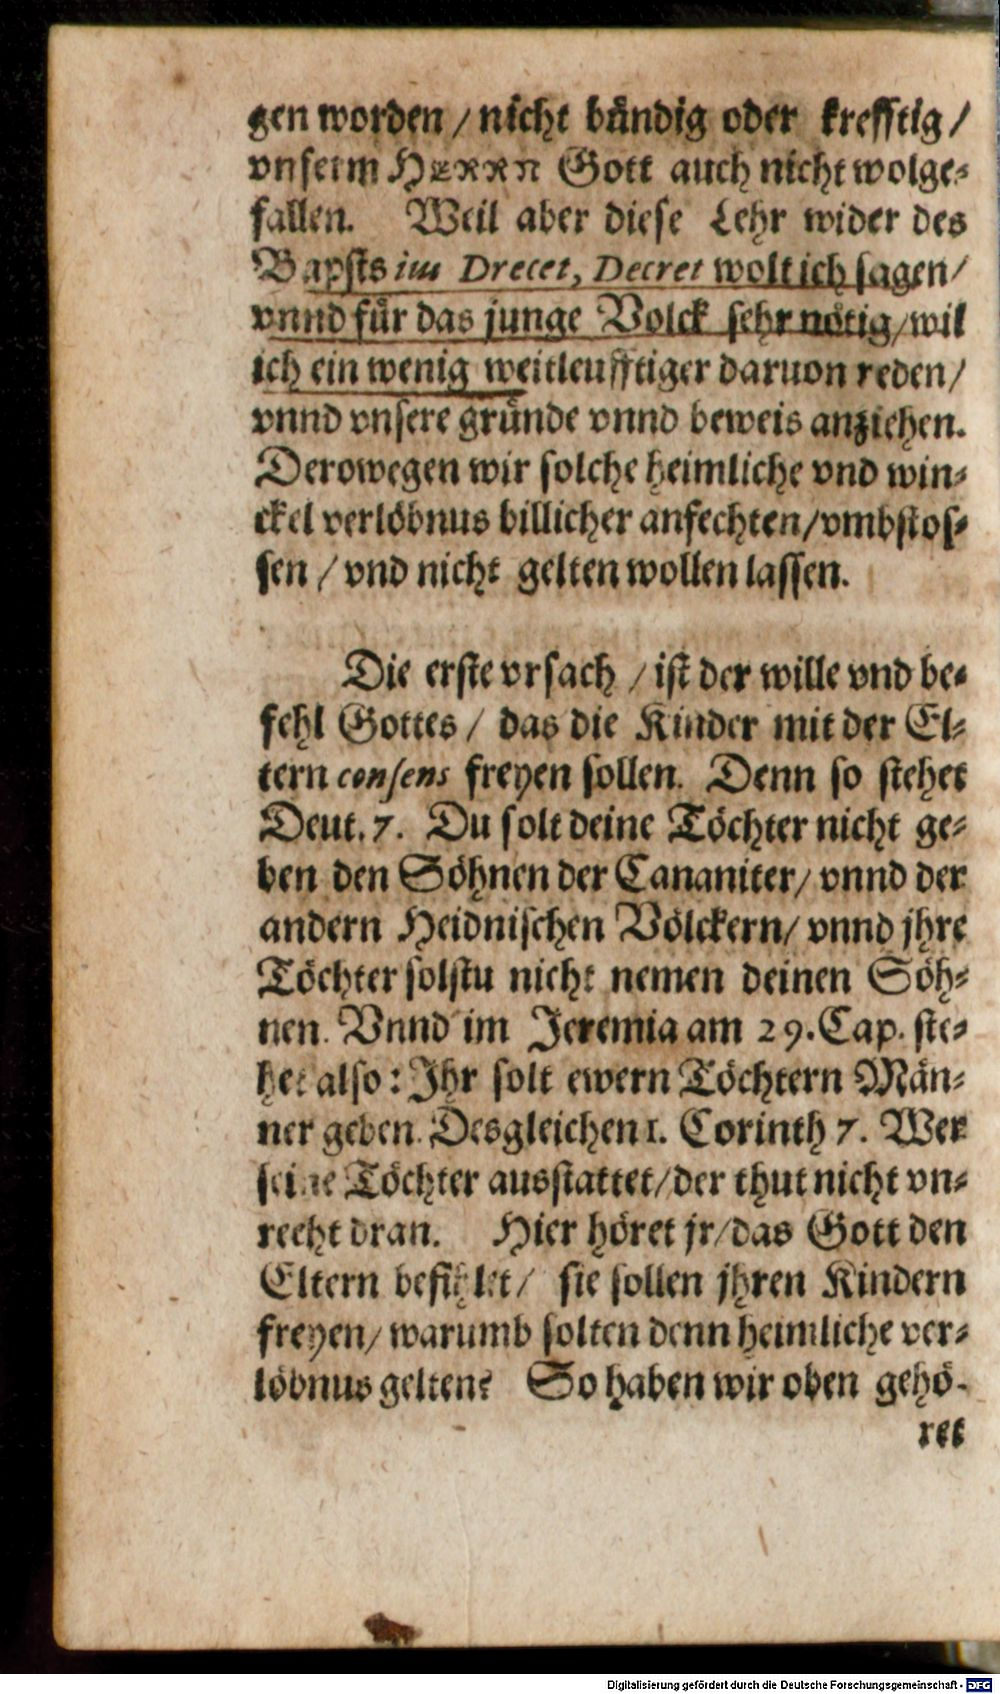 gen worden / nicht bündig oder krefftig /
vnserm HERRN Gott auch nicht wolge-
fallen. Weil aber diese Lehr wider des
Bapsts im Drecet, Decret wolt ich sagen /
vnnd für das junge Volck sehr nötig / wil
ich ein wenig weitleufftiger daruon reden /
vnnd vnsere gründe vnnd beweis anziehen.
Derowegen wir solche heimliche vnd win-
ckel verlöbnus billicher anfechten / vmbstos-
sen / vnd nicht gelten wollen lassen.
Die erste vrsach / ist der wille vnd be-
fehl Gottes / das die Kinder mit der El-
tern consens freyen sollen. Denn so stehet
Deut. 7. Du solt deine Töchter nicht ge-
ben den Söhnen der Cananiter / vnnd der
andern Heidnischen Völckern / vnnd jhre
Töchter solstu nicht nemen deinen Söh-
nen. Vnnd im Jeremia am 29. Cap. ste-
het also: Ihr solt ewern Töchtern Män-
ner geben. Desgleichen 1. Corinth 7. Wer
seine Töchter ausstattet / der thut nicht vn-
recht dran. Hier höret jr / das Gott den
Eltern befihlet / sie sollen jhren Kindern
freyen / warumb solten denn heimliche ver-
löbnus gelten? So haben wir oben gehö-
ret
Digitalisierung gefördert durch die Deutsche Forschungsgemeinschaft - DFG